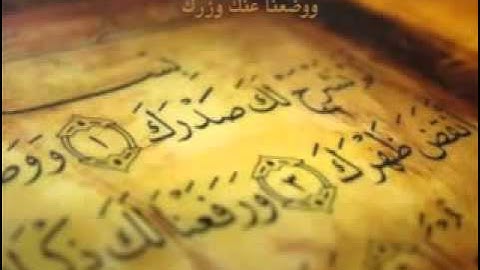 ووضعنا عنك وزرك
بِسْـ
نَشْرَحْ لَكَ صَدْرَكَ ١ وَوَضَـ
أَنقَضَ ظَهْرَكَ ٣ وَرَفَعْنَا لَكَ ذِكْرَ